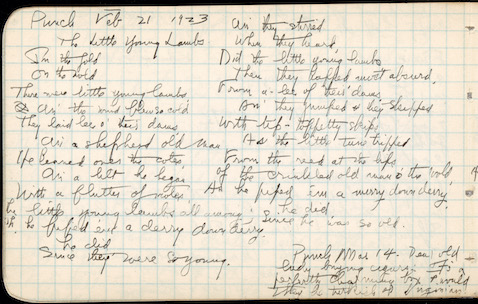 Punch Feb 21 1923
The Little Young Lambs
In the fold
On the wold
There were little young lambs
& An' the wind blew so cold
They laid lee o' their dams
An' a shepherd old man
He leaned over the cotes
An' a lilt he began
With a flutter of notes
little young lambs all among
he piped em a derry down derry.
he did
Since they were so young.
An' they stirred
When they heard
Did the little young lambs
Then they most absurd
From a-lee of their dams
An' they jumped & they skipped
With tip-toppetty skips
As the little tune tripped
From the reed at the lips
of the crinkled old man o the wold,
As he piped em a merry down derry
he did
Since he was so old.
Punch Mar 14. Dear old
lady buying cigars. Its a
perfectly charming box I would